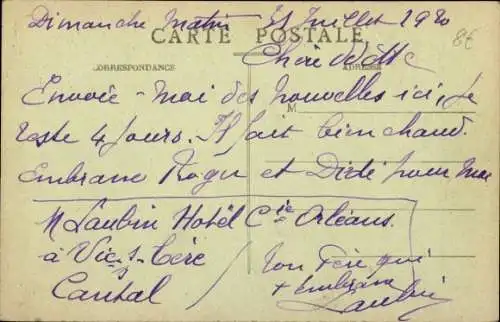 Dimanche Matin 31 Juillet 1920
8€
CARTE POSTALE
CORRESPONDANCE
ADRESSE
Chère
Envoie-moi des nouvelles ici, Je
M
reste 4 jours. Il fait bien chaud.
Embrasse Roger et Dédé pour moi
M Laubin Hôtel Cie Orléans.
à Vic-s-Cère
Ton Père qui
Cantal
t'embrasse
Laubin